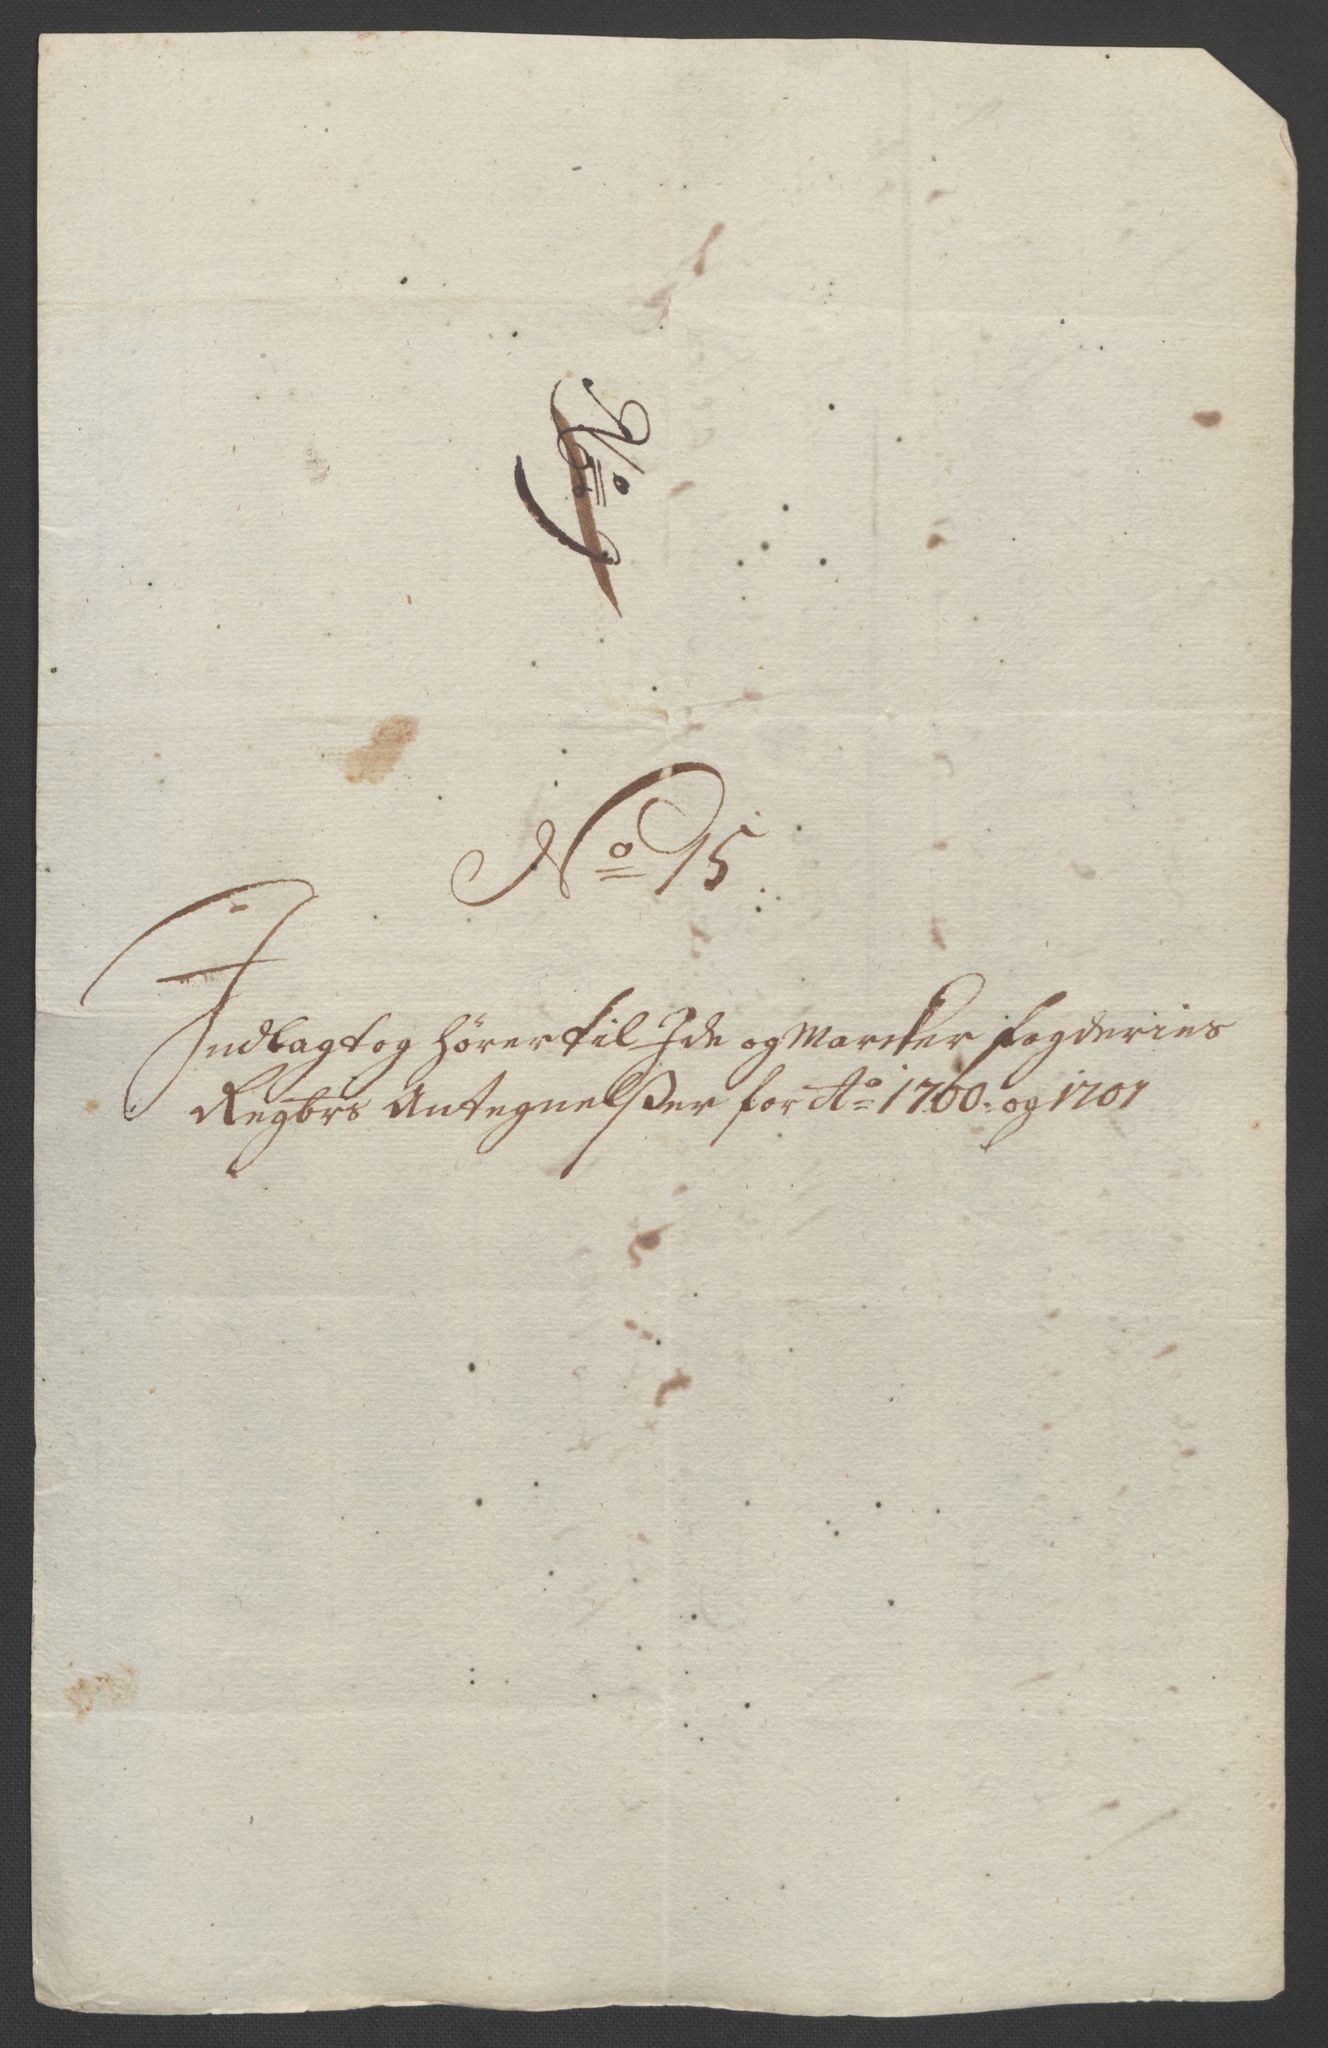 No
No 15
Indlagt og hörer til Ide og Marcker fogderies
Regbrs Antegnelsser for Ao 1700: og 1701